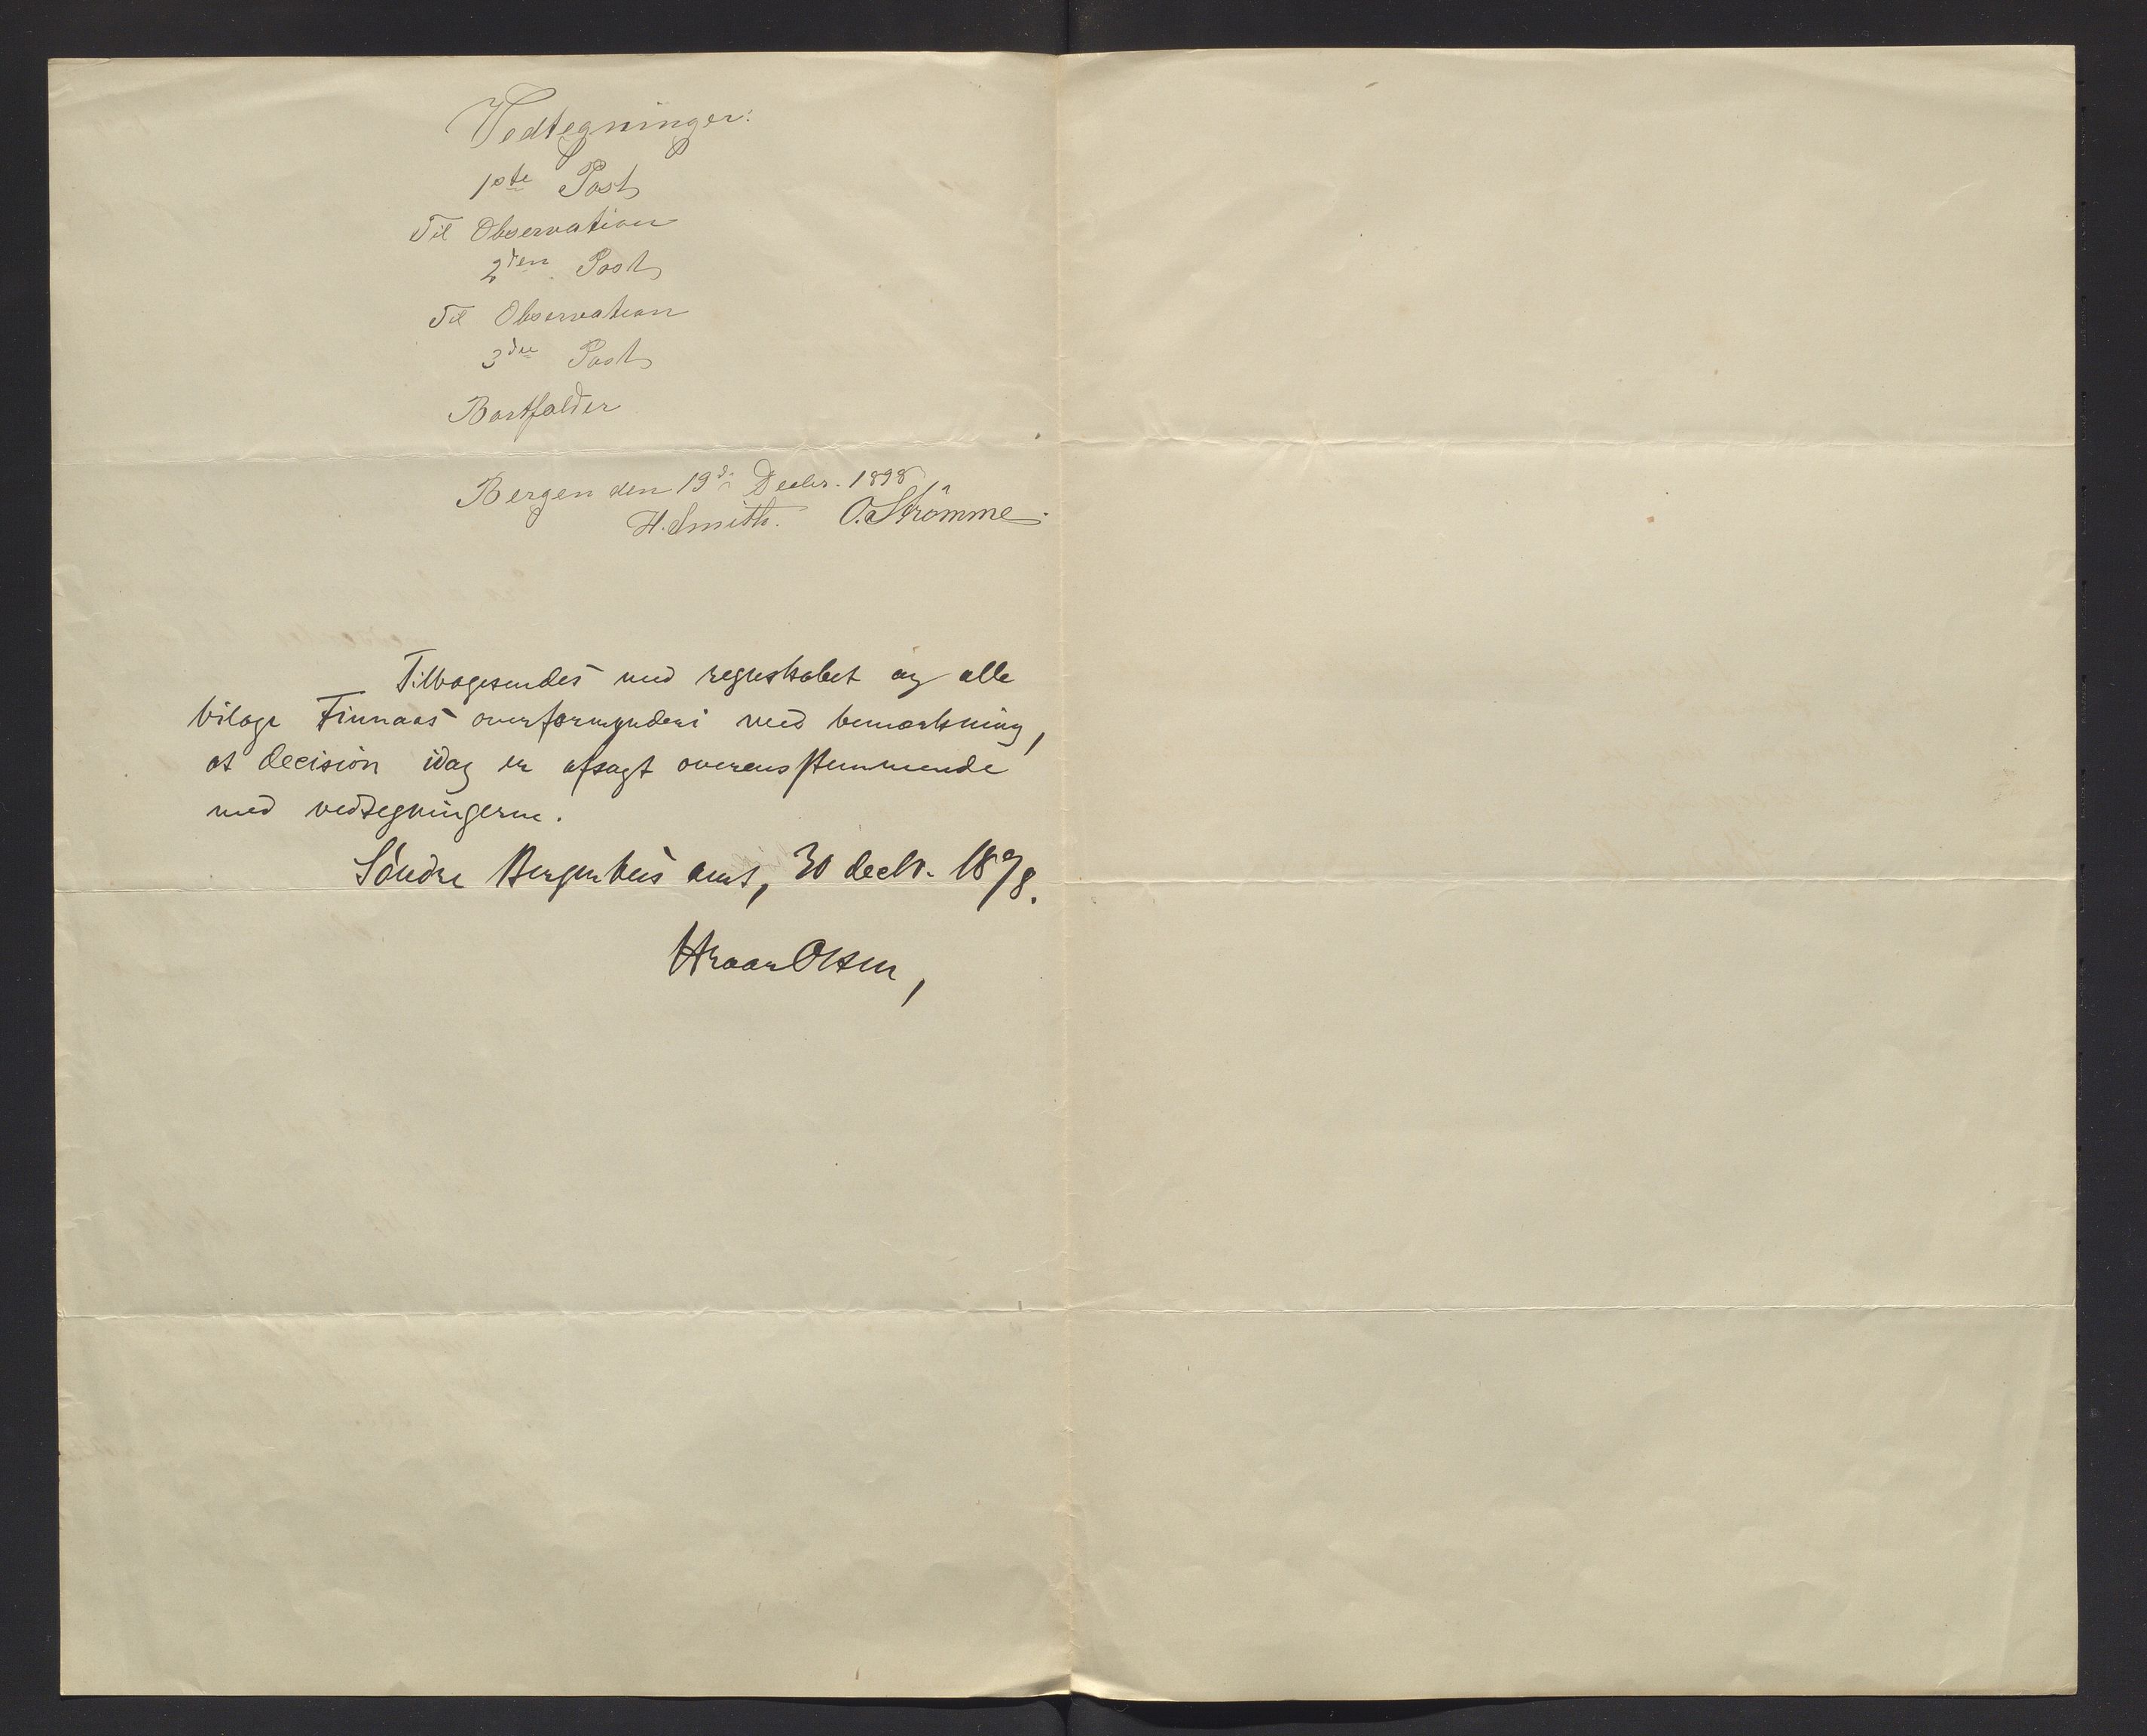 Vedtegninger:
1ste Post
Til Observation
2den Post
Til Observation
3die Post
Bortfalder
Bergen den 19de Decbr. 1898
H. Smith. O. Strömme.
Tilbagesendes med regnskabet og alle
bilage Finnaas overformynderi med bemærkning,
at decision idag er afsagt overensstemmende
med vedtegningerne.
Söndre Bergenhus amt, 30 decbr. 1898.
Hroar Olsen,